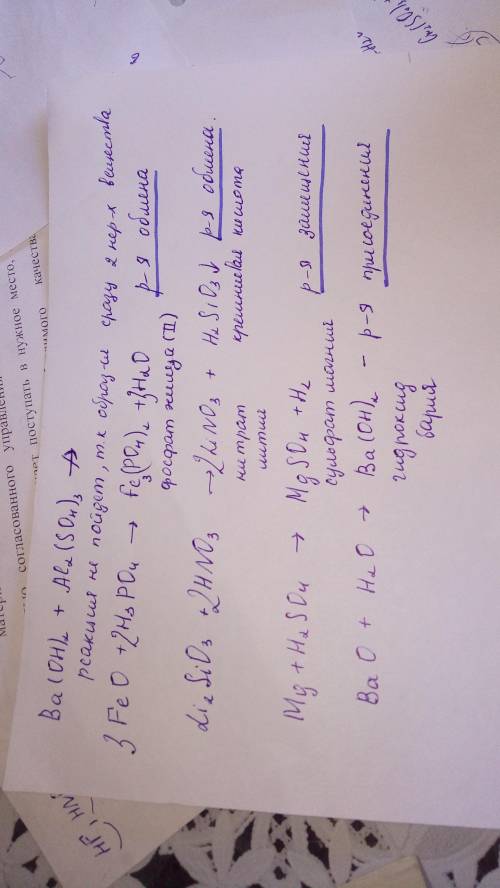 Ba(OH)₂ + Al₂(SO₄)₃ ↛
реакция не пойдет, т.к образ-ся сразу 2 нер-х вещества
3FeO + 2H₃PO₄ → Fe₃(PO₄)₂ + 3H₂O р-я обмена
фосфат железа(II)
Li₂SiO₃ + 2HNO₃ → 2LiNO₃ + H₂SiO₃↓ р-я обмена.
нитрат лития кремниевая кислота
Mg + H₂SO₄ → MgSO₄ + H₂ р-я замещения
сульфат магния
BaO + H₂O → Ba(OH)₂ – р-я присоединения
гидроксид
бария
согласованного управления
поступать в нужное место,
качеств